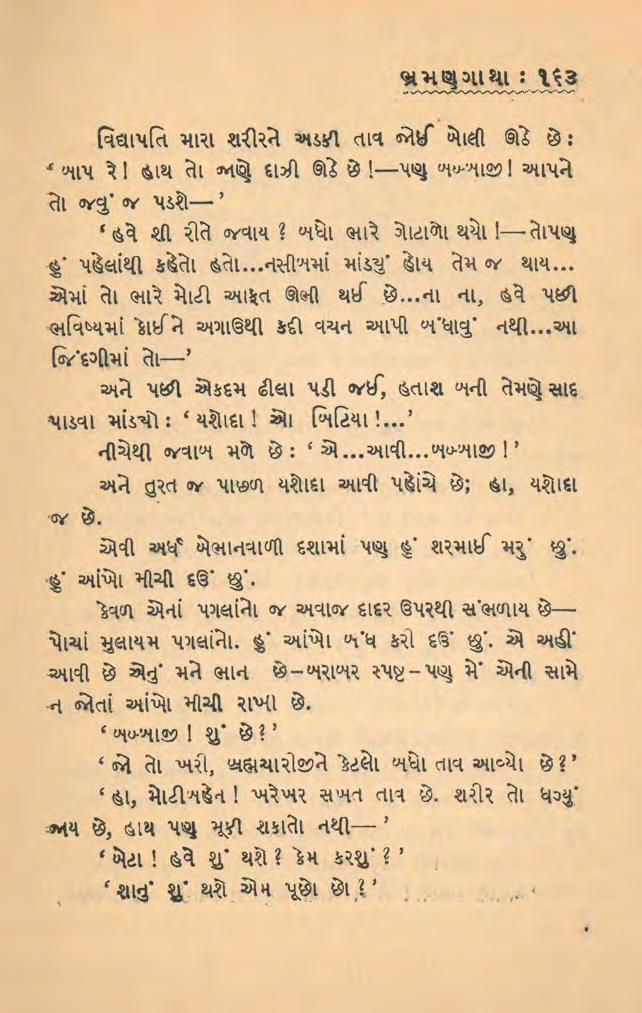 ભ્રમણગાથા : ૧૬૩
વિદ્યાપતિ મારા શરીરને અડકી તાવ જોઈ બોલી ઊઠે છે :
‘ બાપ રે! હાથ તો જાણે દાઝી ઊઠે છે !—પણ બબ્બાજી! આપને
તો જવું જ પડશે—’
‘ હવે શી રીતે જવાય ? બધો ભારે ગોટાળો થયો !—તોપણ
હું પહેલાંથી કહેતો હતો...નસીબમાં માંડ્યું હોય તેમ જ થાય...
એમાં તો ભારે મોટી આફત ઊભી થઈ છે...ના ના, હવે પછી
ભવિષ્યમાં કોઈને અગાઉથી કદી વચન આપી બંધાવું નથી...આ
જિંદગીમાં તો—’
અને પછી એકદમ ઢીલા પડી જઈ, હતાશ બની તેમણે સાદ
પાડવા માંડ્યો : ‘ યશોદા ! ઓ બિટિયા !...’
નીચેથી જવાબ મળે છે : ‘ એ...આવી...બબ્બાજી ! ’
અને તુરત જ પાછળ યશોદા આવી પહોંચે છે; હા, યશોદા
જ છે.
એવી અર્ધ બેભાનવાળી દશામાં પણ હું શરમાઈ મરું છું.
હું આંખો મીચી દઉં છું.
કેવળ એનાં પગલાંનો જ અવાજ દાદર ઉપરથી સંભળાય છે—
પોચાં મુલાયમ પગલાંનો. હું આંખો બંધ કરી દઉં છું. એ અહીં
આવી છે એનું મને ભાન છે–બરાબર સ્પષ્ટ–પણ મેં એની સામે
ન જોતાં આંખો મીચી રાખી છે.
‘ બબ્બાજી ! શું છે ? ’
‘ જો તો ખરી, બ્રહ્મચારીજીને કેટલો બધો તાવ આવ્યો છે ? ’
‘ હા, મોટીબહેન ! ખરેખર સખત તાવ છે. શરીર તો ધગ્યું
જાય છે, હાથ પણ મૂકી શકાતો નથી— ’
‘ બેટા ! હવે શું થશે ? કેમ કરશું ? ’
‘ શાનું શું થશે એમ પૂછો છો ? ’